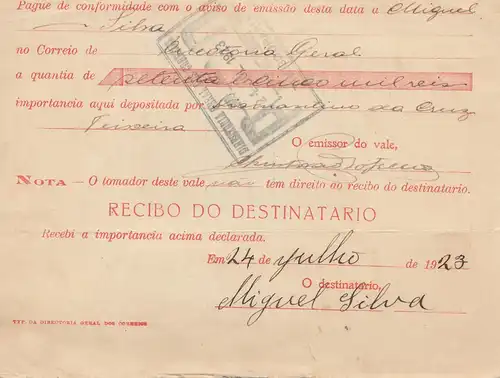 Pague de conformidade com o aviso de emissão desta data a Miguel
Silva
no Correio de Directoria Geral
a quantia de setenta e cinco mil reis
importancia aqui depositada por da Cruz
Teixeira
O emissor do vale,
NOTA — O tomador deste vale não têm direito ao recibo do destinatario.
RECIBO DO DESTINATARIO
Recebi a importancia acima declarada.
Em 24 de Julho de 1923
O destinatario,
Miguel Silva
TYP. DA DIRECTORIA GERAL DOS CORREIOS